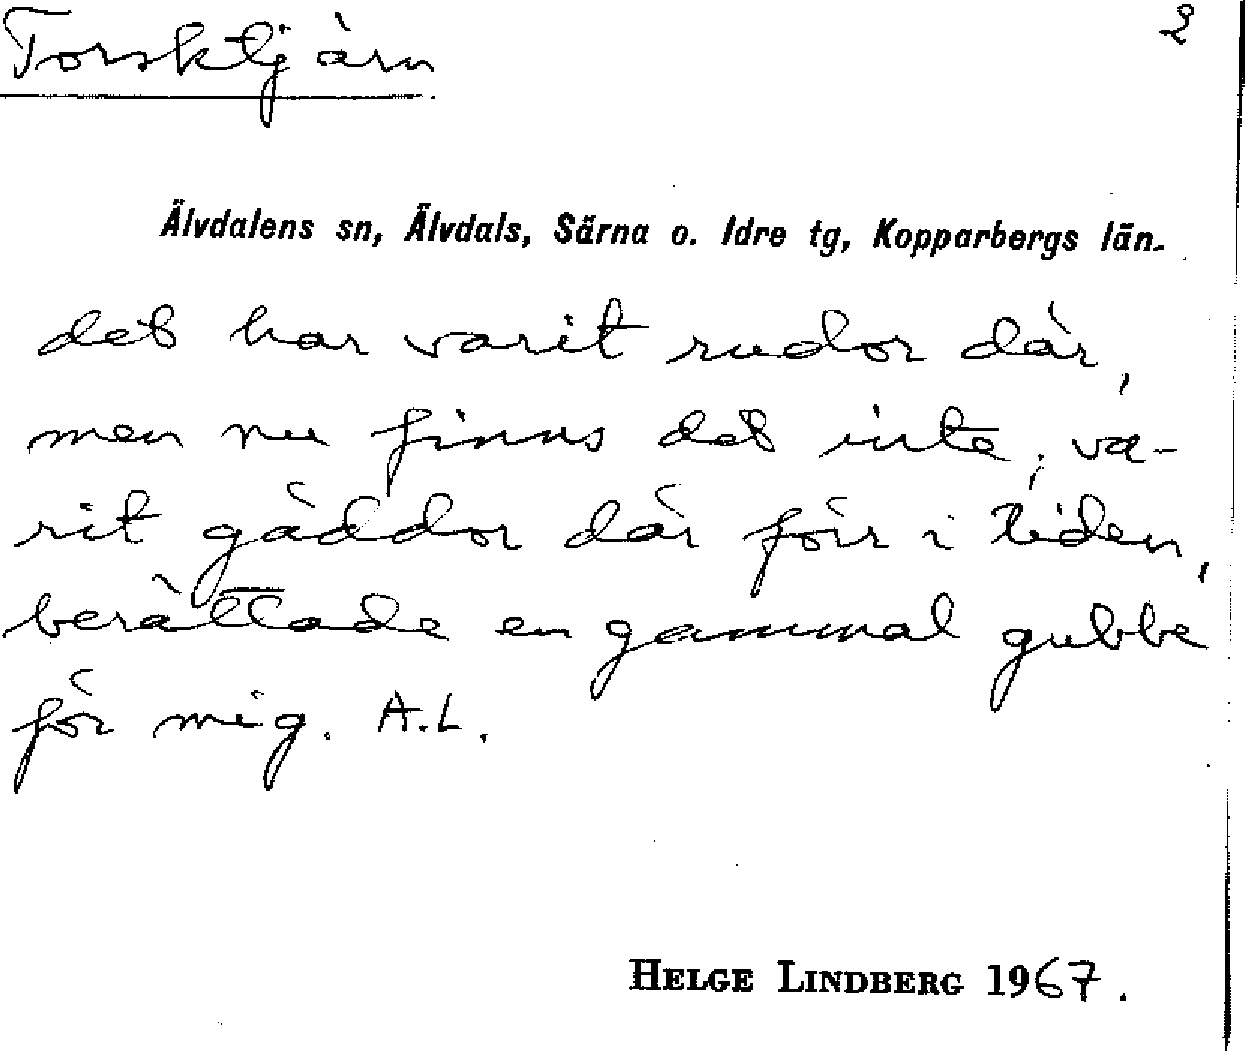 Torsktjärn 2
Älvdalens sn, Älvdals, Särna o. Idre tg, Kopparbergs län.
det har varit rudor där,
men nu finns det inte; va-
rit gäddor där förr i tiden,
berättade en gammal gubbe
för mig. A.L.
HELGE LINDBERG 1967.